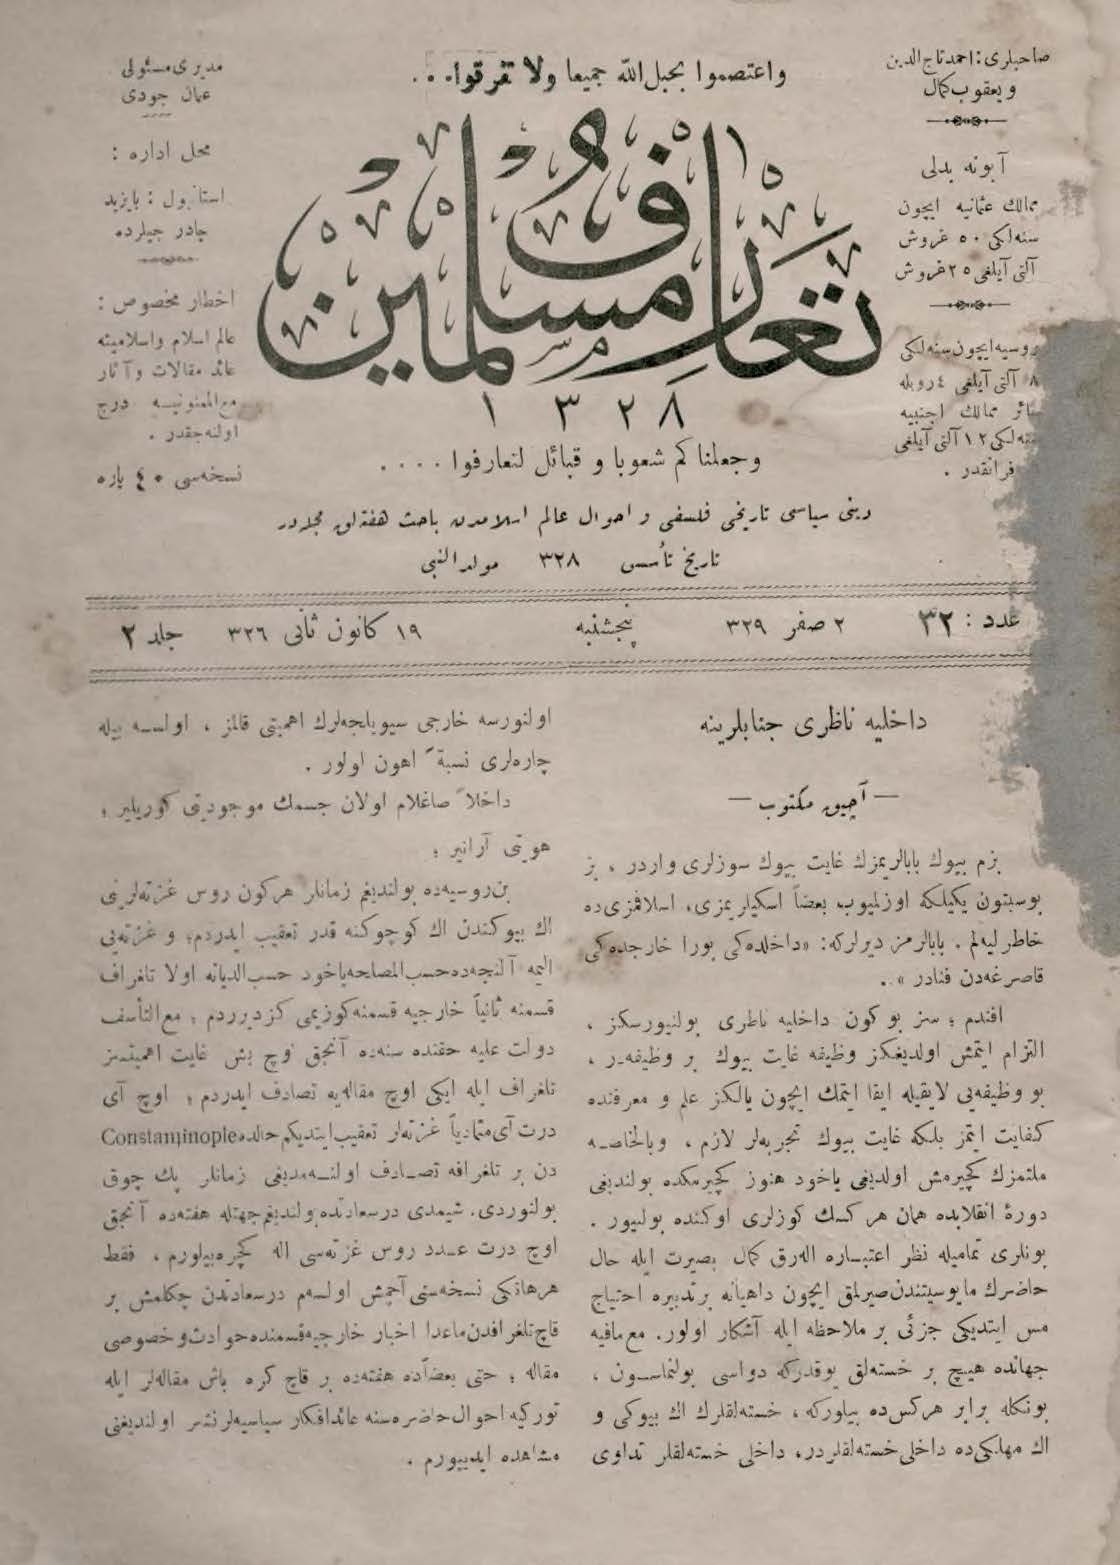 صاحبلری : احمد تاج الدین
و یعقوب کمال
آبونه بدلی
ممالك عثمانیه ایچون
سنه‌لکی ٥٠ غروش
آلتی آیلغی ٢٥ غروش
روسیه ایچون سنه‌لکی
٨ آلتی آیلغی ٤ روبله
سائر ممالك اجنبیه
سنه‌لکی ١٢ آلتی آیلغی
فرانقدر .
واعتصموا بحبل الله جمیعا ولا تفرقوا . . .
تعارف مسلمین
١٣٢٨
وجعلناکم شعوبا و قبائل لتعارفوا . . . .
دینی سیاسی تاریخی فلسفی و احوال عالم اسلامدن باحث هفته‌لق مجله‌در
تاریخ تأسیسی ٣٢٨ مولد النبی
مدیر مسئولی
عثمان جودی
محل اداره :
استانبول : بایزید
چادر جیلرده
اخطار مخصوص :
عالم اسلام واسلامیته
عائد مقالات و آثار
مع الممنونیـه درج
اولنه‌جقدر .
نسخه‌سی ٤٠ پاره
عدد : ٣٢
٢ صفر ٣٢٩
پنجشنبه
١٩ کانون ثانی ٣٢٦
جلد ٢
داخلیه ناظری جنابلرینه
— آچیق مکتوب —
بزم بیوك بابالریمزك غایت بیوك سوزلری واردر ، بز
بوسبتون یکیلکه اوزلمیوب بعضاً اسکیلریمزی، اسلافمزی‌ده
خاطرلیه‌لم . بابالرمز دیرلرکه : «داخلده‌کی بورا خارجده‌کی
قاصرغه‌دن فنادر » .
افندم ؛ سز بوکون داخلیه ناظری بولنیورسکز ،
التزام ایتمش اولدیغکز وظیفه غایت بیوك بر وظیفه‌در ،
بو وظیفه‌یی لایقیله ایفا ایتمك ایچون یالکز علم و معرفنده
کفایت ایتمز بلکه غایت بیوك تجربه‌لر لازم ، وبالخاصه
ملتمزك کچیرمش اولدیغی یاخود هنوز کچیرمکده بولندیغی
دورۀ انقلابده همان هرکسك کوزلری اوکنده بولنیور .
بونلری تمامیله نظر اعتبـاره اله‌رق کمال بصیرت ایله حال
حاضرك مایوسیتندن صیرلمق ایچون داهیانه برتدبیره احتیاج
مس ایتدیکی جزئی بر ملاحظه ایله آشکار اولور . مع مافیه
جهانده هیچ بر خسته‌لق یوقدرکه دواسی بولنماسـون ،
بونکله برابر هرکس‌ده بیلورکه ، خسته‌لقلرك اك بیوکی و
اك مهلکی‌ده داخلی خسته‌لقلردر، داخلی خسته‌لقلر تداوی
اولنورسه خارجی سیویلجه‌لرك اهمیتی قالمز ، اولسـه بیله
چاره‌لری نسبةً اهون اولور .
داخلاً صاغلام اولان جسمك موجودیتی کوریلیر ؛
هویتی آرانیر ؛
بن‌روسیه‌ده بولندیغم زمانلر هرکون روس غزته‌لرینی
اك بیوکندن اك کوچوکنه قدر تعقیب ایدردم؛ و غزته‌یی
الیمه آلنجه‌ده حسب المصلحه یاخود حسب الدیانه اولا تلغراف
قسمنه ثانیاً خارجیه قسمنه کوزیمی کزدیرردم ؛ مع التأسف
دولت علیه حقنده سنه‌ده آنجق اوچ بش غایت اهمیتسز
تلغراف ایله ایکی اوچ مقاله‌یه تصادف ایدردم ؛ اوچ آی
درت آی متمادیاً غزته‌لر تعقیب ایتدیکم حالده Constaminople
دن بر تلغرافه تصـادف اولنـه‌مدیغی زمانلر پك چوق
بولنوردی. شیمدی درسعادتده بولندیغم جهتله هفته‌ده آنجق
اوچ درت عـدد روس غزته‌سی اله کچره‌بیلورم ، فقط
هرهانکی نسخه‌سنی آچمش اولسه‌م درسعادتدن چکلمش بر
قاچ تلغرافدن ماعدا اخبار خارجیه قسمنده حوادث و خصوصی
مقاله ؛ حتی بعضاًده هفته‌ده بر قاچ کره باش مقاله‌لر ایله
تورکیه احوال حاضره‌سنه عائد افکار سیاسیه‌لر نشر اولندیغنی
مشاهده ایدییورم .